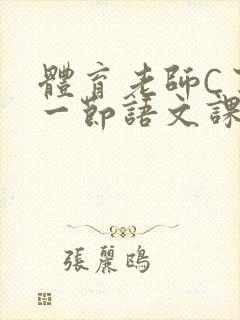 體育老師C
一節語文課
張麗鴎